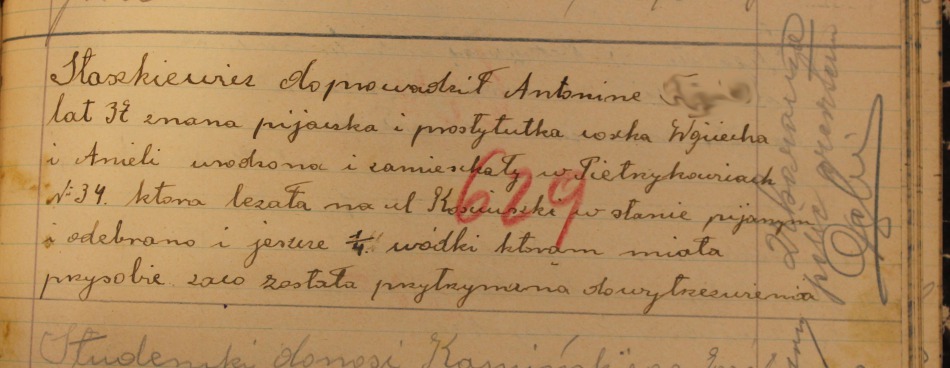 Staszkiewicz doprowadził Antonine
lat 32 znana pijaczka i prostytutka uoszka Wojciecha
i Anieli urodzona i zamieszkały w Pietrzykowicach
№ 34. ktora lezała na ul Kościuszki w stanie pijanym
i odebrano i jeszcze 1/4. wódki ktoram miała
przysobie zaco została przytrzymana dowytrzezwienia
629
Studenski donosi